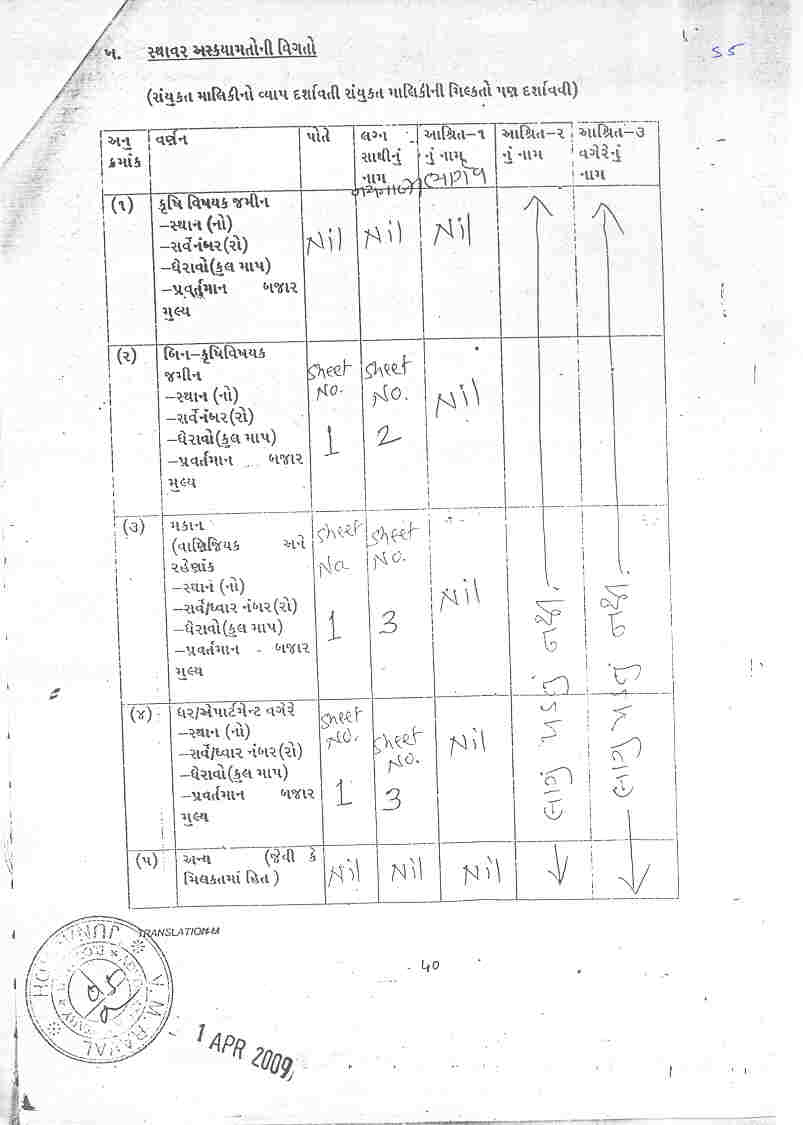 55
ખ. સ્થાવર અસ્કયામતોની વિગતો
(સંયુકત માલિકીનો વ્યાપ દર્શાવતી સંયુકત માલિકીની મિલ્કતો પણ દર્શાવવી)
અનુ ક્રમાંક
વર્ણન
પોતે
લગ્ન સાથીનું નામ
આશ્રિત-૧ નું નામ
ભાર્ગવ
આશ્રિત-૨ નું નામ
આશ્રિત-૩ વગેરેનું નામ
(૧)
કૃષિ વિષયક જમીન
-સ્થાન (નો)
-સર્વેનંબર(રો)
-ઘેરાવો(કુલ માપ)
-પ્રવર્તમાન બજાર
મુલ્ય
Nil
Nil
Nil
(૨)
બિન-કૃષિવિષયક
જમીન
-સ્થાન (નો)
-સર્વેનંબર(રો)
-ઘેરાવો(કુલ માપ)
-પ્રવર્તમાન બજાર
મુલ્ય
Sheet No. 1
Sheet No. 2
Nil
(૩)
મકાન
(વાણિજિયક અને
રહેણાંક
-સ્થાન (નો)
-સર્વે/ધ્વાર નંબર(રો)
-ઘેરાવો(કુલ માપ)
-પ્રવર્તમાન - બજાર
મુલ્ય
Sheet No 1
Sheet No. 3
Nil
(૪)
ઘર/એપાર્ટમેન્ટ વગેરે
-સ્થાન (નો)
-સર્વે/ધ્વાર નંબર(રો)
-ઘેરાવો(કુલ માપ)
-પ્રવર્તમાન બજાર
મુલ્ય
Sheet No. 1
Sheet No. 3
Nil
(૫)
અન્ય (જેવી કે
મિલકતમાં હિત)
Nil
Nil
Nil
લાગુ પડતું નથી.
લાગુ પડતું નથી.
TRANSLATION-M
૫૦
V. M. RAVAL
1 APR 2009